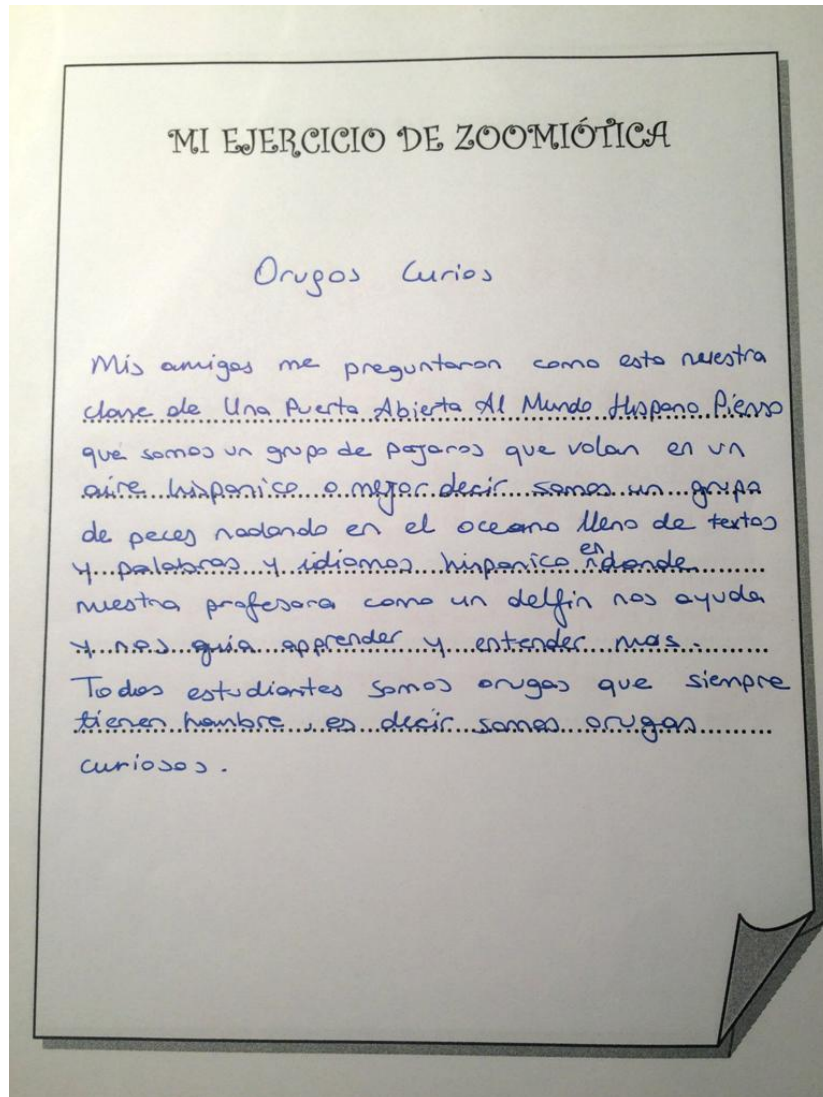 MI EJERCICIO DE ZOOMIÓTICA
Orugos Curios
Mis amigos me preguntaron como esta nuestra
clase de Una Puerta Abierta Al Mundo Hispano Pienso
que somos un grupo de pajaros que volan en un
aire hispanico o mejor decir somos un grupo
de peces nadando en el oceano lleno de textos
y palabras y idiomas hispanico en donde
nuestra profesora como un delfin nos ayuda
y nos guia apprender y entender mas.
Todos estudiantes somos orugas que siempre
tienen hambre, es decir somos orugas
curiosos.